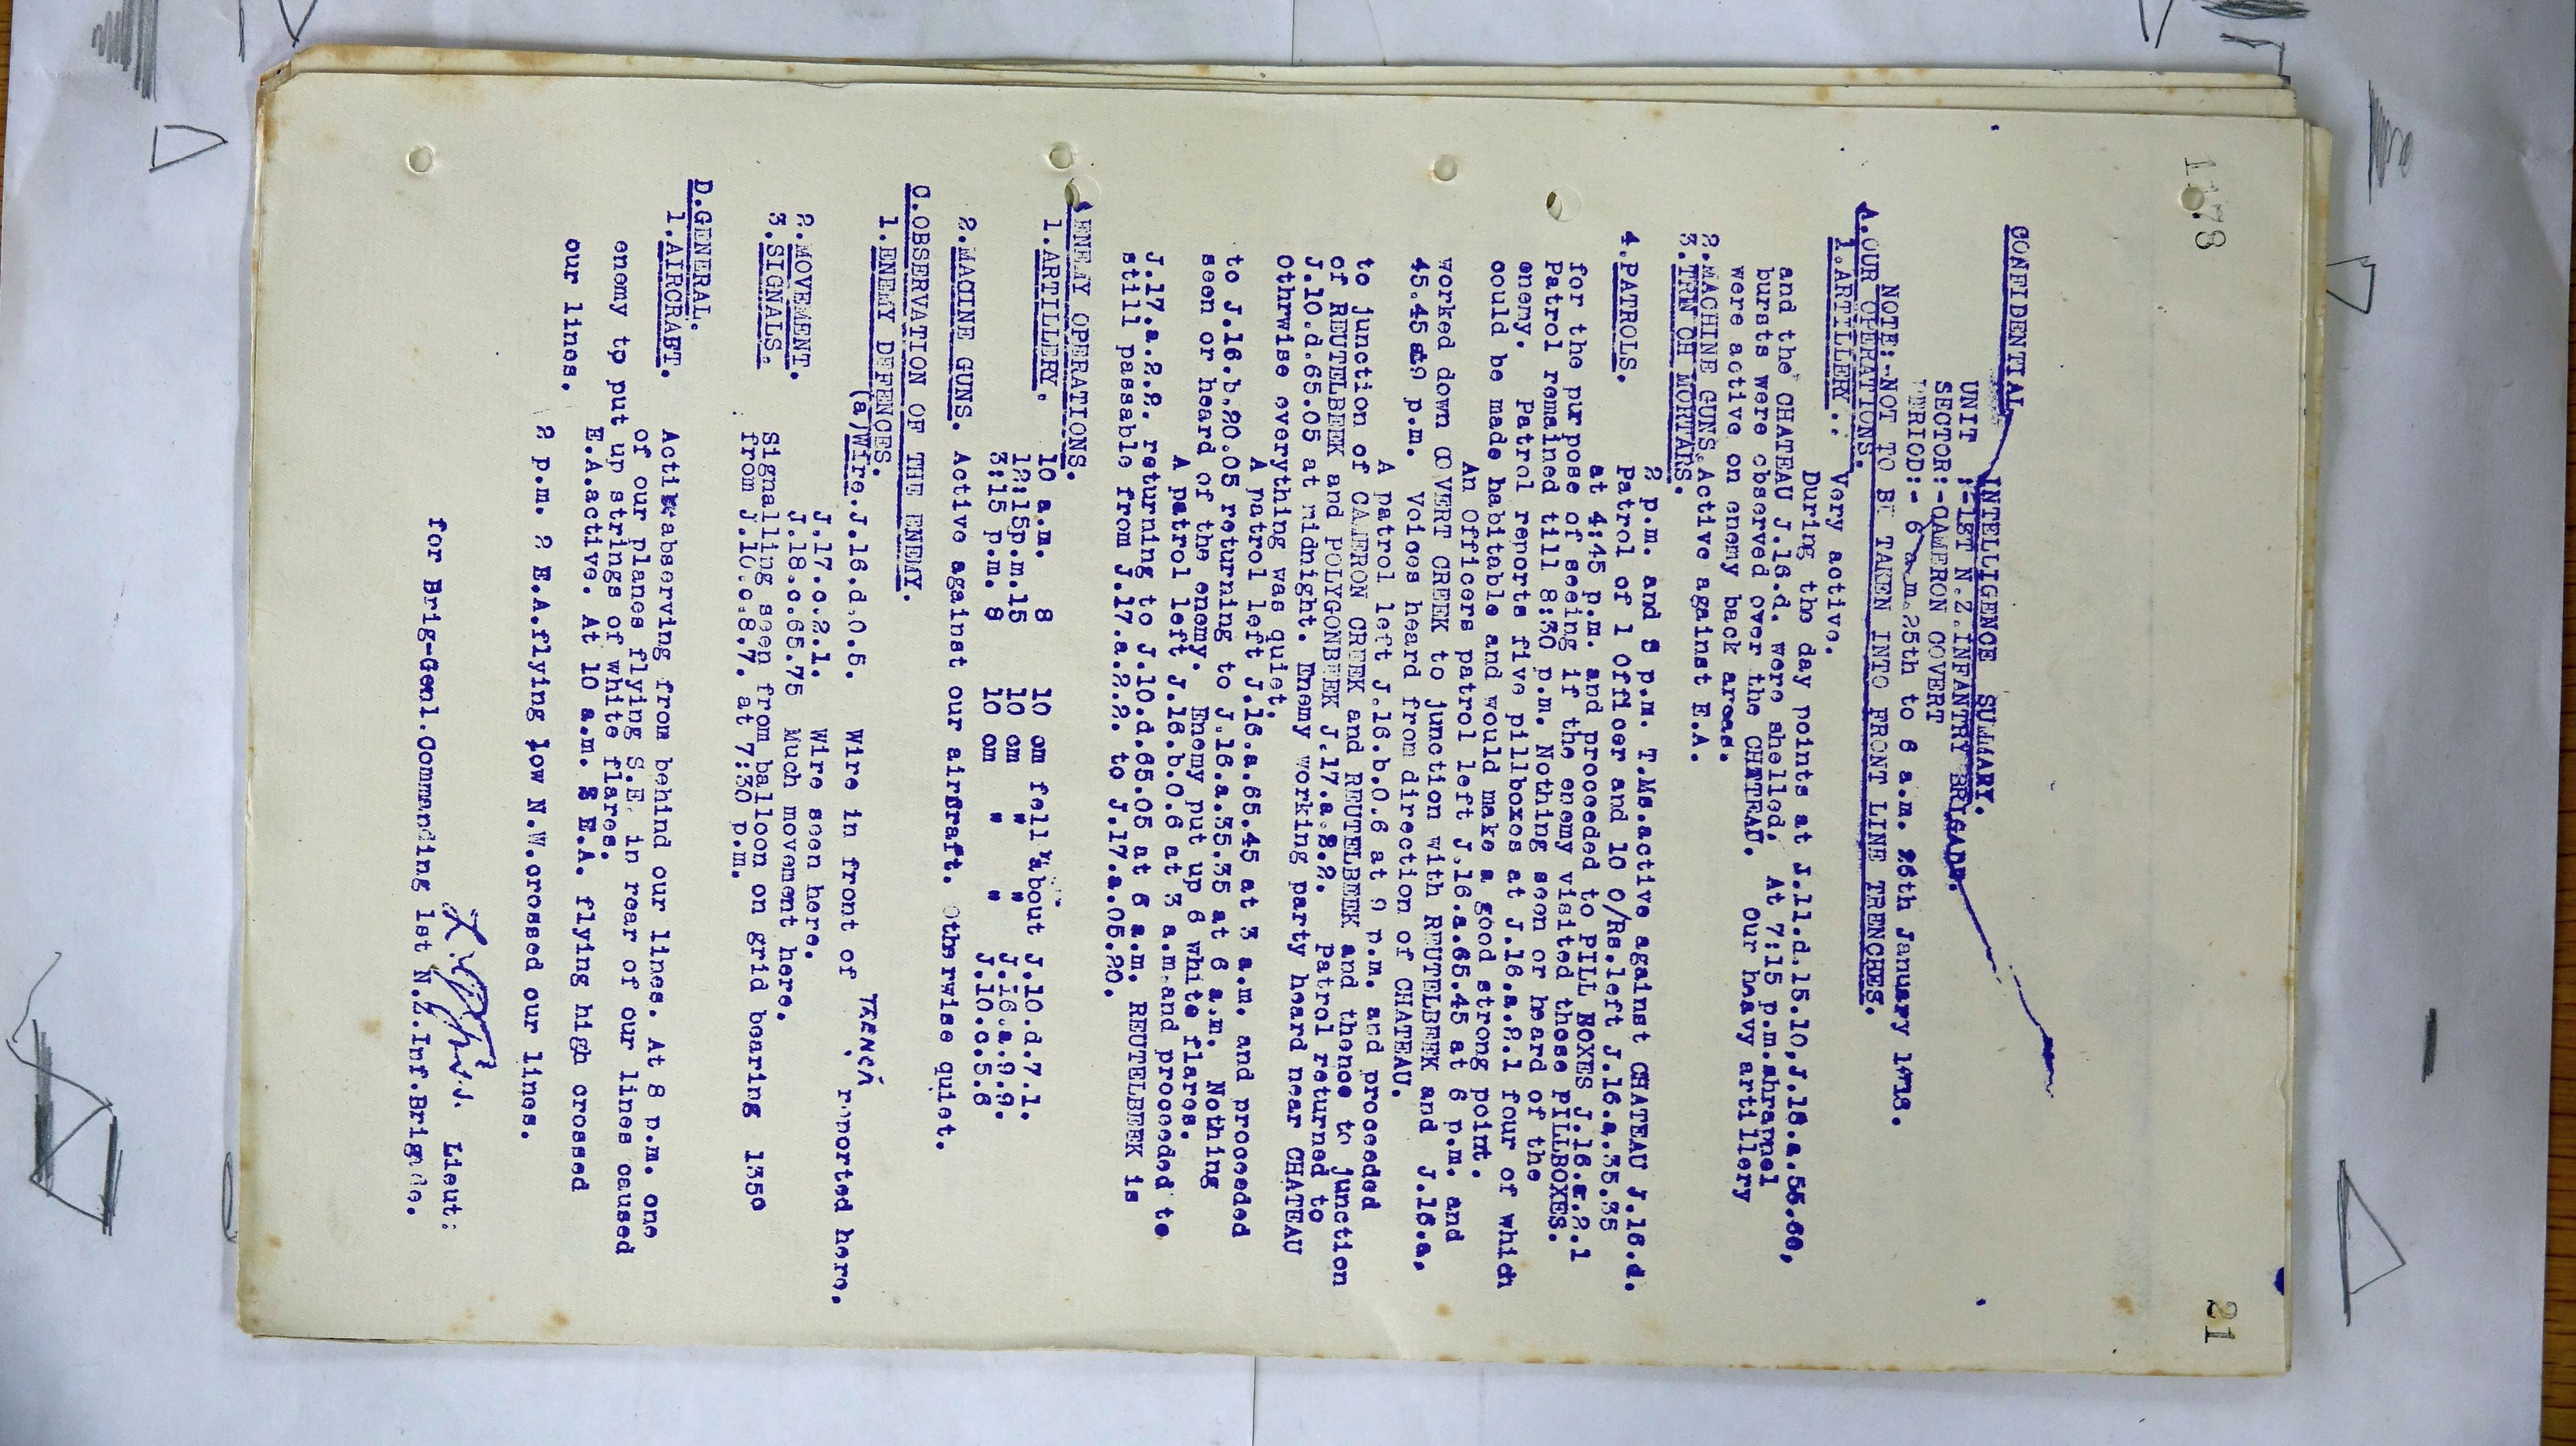 1178
21
CONFIDENTIAL
INTELLIGENCE SUMMARY.
UNIT :-1ST N.Z.INFANTRY BRIGADE.
SECTOR:-CAMERON COVERT
PERIOD:- 6 a.m.25th to 6 a.m. 26th January 1918.
NOTE:-NOT TO BE TAKEN INTO FRONT LINE TRENCHES.
A.OUR OPERATIONS.
1.ARTILLERY.. Very active.
During the day points at J.11.d.15.10,J.18.a.55.60,
and the CHATEAU J.16.d. were shelled. At 7:15 p.m.shrapnel
bursts were observed over the CHATEAU. Our heavy artillery
were active on enemy back areas.
2.MACHINE GUNS.Active against E.A.
3.TREN CH MORTARS.
2 p.m. and 8 p.m. T.Ms.active against CHATEAU J.16.d.
4.PATROLS. Patrol of 1 Officer and 10 O/Rs.left J.16.a.35.35
at 4:45 p.m. and proceeded to PILL BOXES J.16.a.2.1
for the purpose of seeing if the enemy visited those PILLBOXES.
Patrol remained till 8:30 p.m. Nothing seen or heard of the
enemy. Patrol reports five pillboxes at J.16.a.2.1 four of which
could be made habitable and would make a good strong point.
An Officers patrol left J.16.a.65.45 at 6 p.m. and
worked down COVERT CREEK to junction with REUTELBEEK and J.16.a,
45.45 at 9 p.m. Voices heard from direction of CHATEAU.
A patrol left J.16.b.0.6 at 9 p.m. and proceeded
to junction of CAMERON CREEK and REUTELBEEK and thence to junction
of REUTELBEEK and POLYGONBEEK J.17.a.2.2. Patrol returned to
J.10.d.65.05 at midnight. Enemy working party heard near CHATEAU
othrwise everything was quiet.
A patrol left J.16.a.65.45 at 3 a.m. and proceeded
to J.16.b.20.05 returning to J.16.a.35.35 at 6 a.m. Nothing
seen or heard of the enemy. Enemy put up 6 white flares.
A patrol left J.16.b.0.6 at 3 a.m.and proceeded to
J.17.a.2.2. returning to J.10.d.65.05 at 6 a.m. REUTELBEEK is
still passable from J.17.a.2.2. to J.17.a.05.20.
ENEMY OPERATIONS.
1.ARTILLERY. 10 a.m. 8 10 cm fell about J.10.d.7.1.
12:15p.m.15 10 cm " " J.16.a.9.9.
3:15 p.m. 8 10 cm " " J.10.c.5.6
2.MACINE GUNS. Active against our airfraft. Otherwise quiet.
C.OBSERVATION OF THE ENEMY.
1.ENEMY DEFENCES.
(a)Wire.J.16.d.0.5. Wire in front of TRENCH reported here.
J.17.c.2.1. Wire seen here.
2.MOVEMENT. J.18.c.65.75 Much movement here.
3.SIGNALS. Signalling seen from balloon on grid bearing 135°
from J.10.c.8.7. at 7:30 p.m.
D.GENERAL.
1.AIRCRAFT. Active observing from behind our lines. At 8 p.m. one
of our planes flying S.E. in rear of our lines caused
enemy to put up strings of white flares.
E.A.active. At 10 a.m. 3 E.A. flying high crossed
our lines.
2 p.m. 2 E.A.flying low N.W.crossed our lines.
Lieut:
for Brig-Genl.Commanding 1st N.Z.Inf.Brigade.